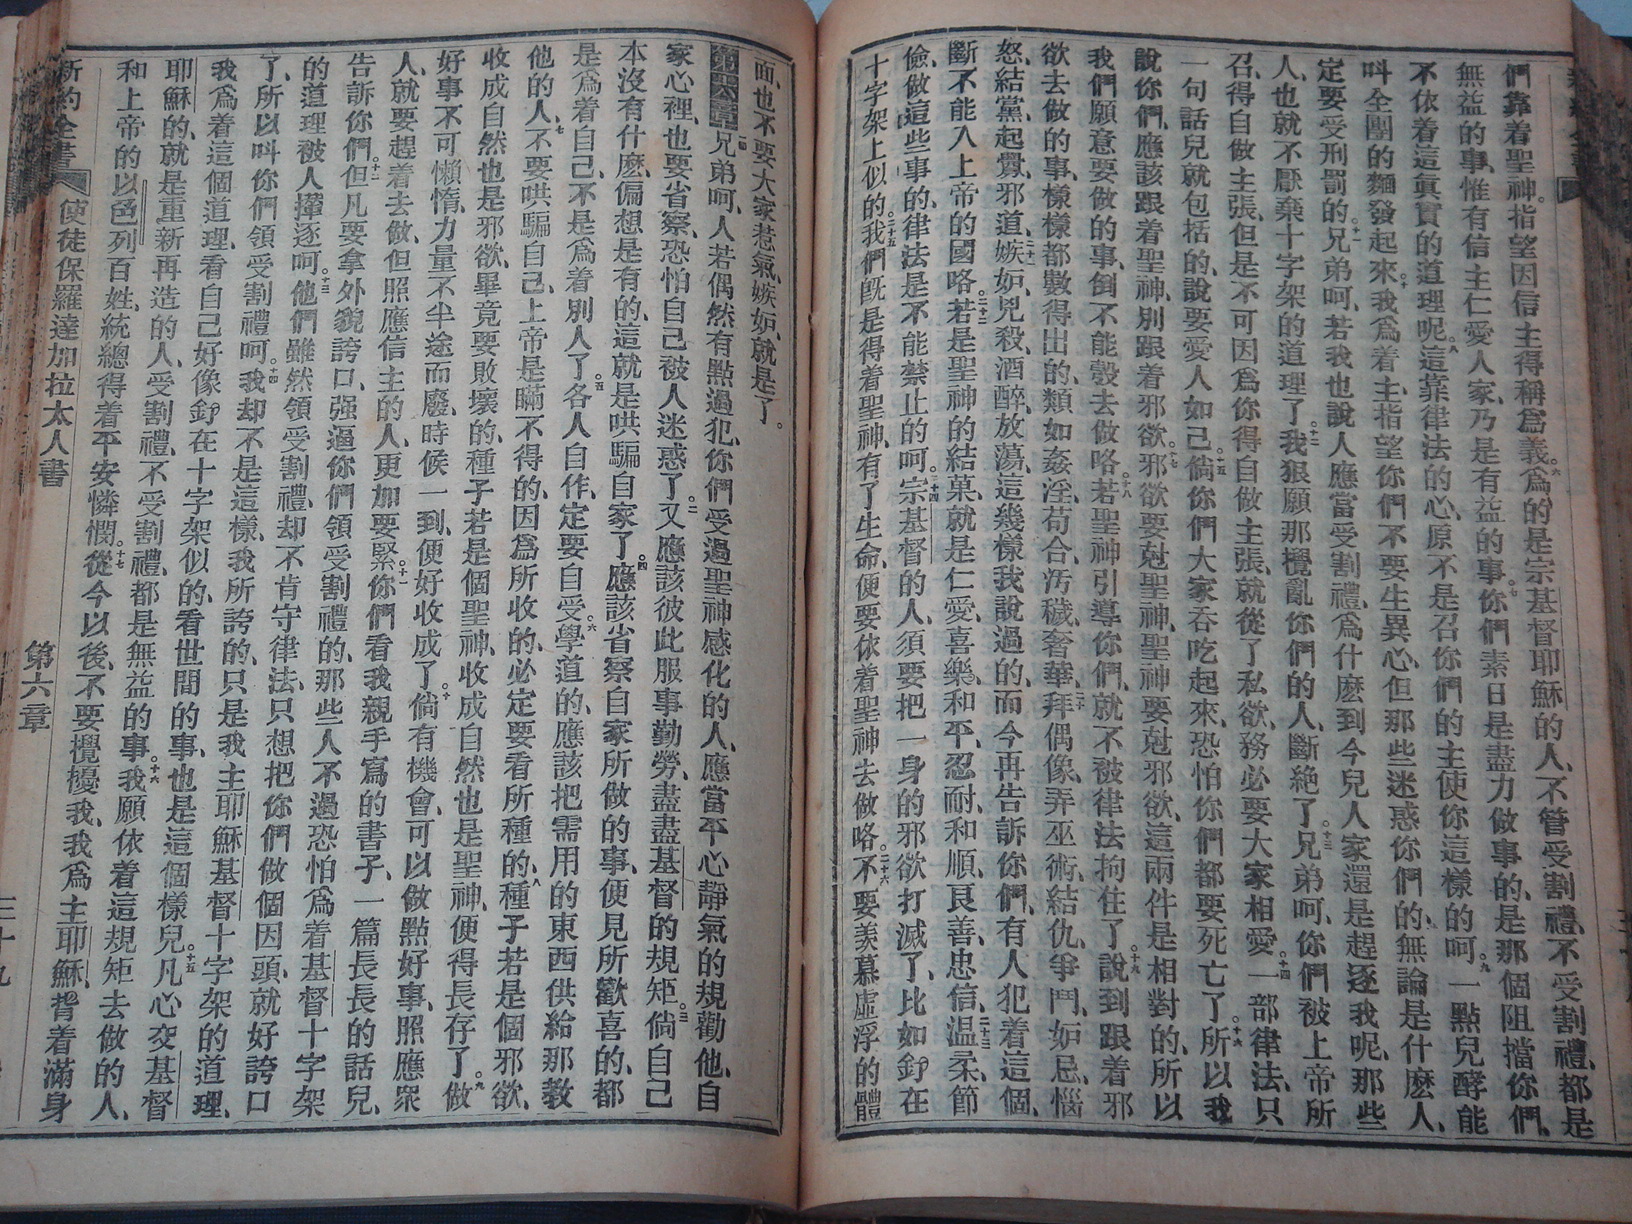 們靠着聖神、指望因信主得稱爲義。六爲的是宗基督耶穌的人、不管受割禮、不受割禮、都是
無益的事、惟有信主仁愛人家、乃是有益的事。七你們素日是盡力做事的、是那個阻擋你們、
不依着這眞實的道理呢。八這靠律法的心、原不是召你們的主使你這樣的呵。九一點兒酵能
叫全團的麵發起來。十我爲着主、指望你們不要生異心、但那些迷惑你們的、無論是什麽人、
定要受刑罰的。十一兄弟呵、若我也說人應當受割禮、爲什麽到今兒人家還是趕逐我呢、那些
人、也就不厭棄十字架的道理了。十二我狠願那攪亂你們的人、斷絕了。十三兄弟呵、你們被上帝所
召、得自做主張、但是不可因爲你得自做主張、就從了私欲、務必要大家相愛。十四一部律法、只
一句話兒就包括的、說要愛人如己。十五倘你們大家吞吃起來、恐怕你們都要死亡了。十六所以我
說你們應該跟着聖神、別跟着邪欲。十七邪欲要尅聖神、聖神要尅邪欲、這兩件是相對的、所以
我們願意要做的事、倒不能彀去做咯。十八若聖神引導你們、就不被律法拘住了。十九說到跟着邪
欲去做的事、樣樣都數得出的、類如姦淫、苟合、汚穢、奢華、二十拜偶像、弄巫術、結仇、爭鬥、妒忌、惱
怒、結黨、起釁、邪道、二十一嫉妒、兇殺、酒醉、放蕩、這幾樣我說過的、而今再告訴你們、有人犯着這個、
斷不能入上帝的國咯。二十二若是聖神的結菓、就是仁愛、喜樂、和平、忍耐、和順、良善、忠信、二十三溫柔、節
儉、做這些事的、律法是不能禁止的呵。二十四宗基督的人、須要把一身的邪欲打滅了、比如釘在
十字架上似的。二十五我們旣是得着聖神、有了生命、便要依着聖神去做咯。二十六不要羨慕虛浮的體
面、也不要大家惹氣嫉妒、就是了。
第六章 一兄弟呵、人若偶然有點過犯、你們受過聖神感化的人、應當平心靜氣的規勸他、自
家心裡、也要省察、恐怕自己被人迷惑了。二又應該彼此服事勤勞、盡盡基督的規矩。三倘自己
本沒有什麽、偏想是有的、這就是哄騙自家了。四應該省察自家所做的事、便見所歡喜的、都
是爲着自己、不是爲着別人了。五各人自作、定要自受。六學道的、應該把需用的東西供給那敎
他的人。七不要哄騙自己、上帝是瞞不得的、因爲所收的、必定要看所種的。八種子若是個邪欲、
收成自然也是邪欲、畢竟要敗壞的、種子若是個聖神、收成自然也是聖神、便得長存了。九做
好事不可懶惰、力量不半途而廢、時候一到、便好收成了。十倘有機會、可以做點好事、照應衆
人、就要趕着去做、但照應信主的人、更加要緊。十一你們看我親手寫的書子、一篇長長的話兒、
告訴你們。十二但凡要拿外貌誇口、强逼你們領受割禮的、那些人不過恐怕爲着基督十字架
的道理被人攆逐呵。十三他們雖然領受割禮、却不肯守律法、只想把你們做個因頭、就好誇口
了、所以叫你們領受割禮呵。十四我却不是這樣、我所誇的、只是我主耶穌基督十字架的道理、
我爲着這個道理、看自己好像釘在十字架似的、看世間的事、也是這個樣兒。十五凡心交基督
耶穌的、就是重新再造的人、受割禮、不受割禮、都是無益的事。十六我願依着這規矩去做的人、
和上帝的以色列百姓、統總得着平安憐憫。十七從今以後、不要攪擾我、我爲主耶穌、揹着滿身
新約全書 使徒保羅達加拉太人書 第六章 三十九